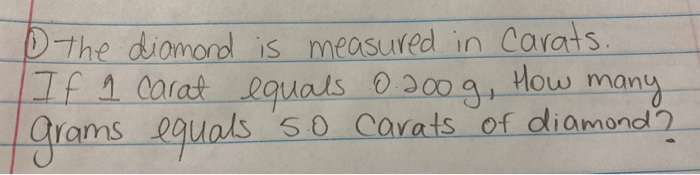 ① the diamond is measured in Carats.
If 1 Carat equals 0.200g, How many
grams equals 5.0 Carats of diamond?